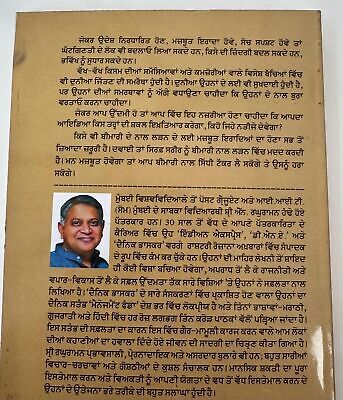 ਜੇਕਰ ਉਦੇਸ਼ ਨਿਰਧਾਰਿਤ ਹੋਣ, ਮਜ਼ਬੂਤ ਇਰਾਦਾ ਹੋਵੇ, ਸੋਚ ਸਪਸ਼ਟ ਹੋਵੇ ਤਾਂ
ਘੱਟਗਿਣਤੀ ਦੇ ਲੋਕ ਵੀ ਬਦਲਾਓ ਲਿਆ ਸਕਦੇ ਹਨ, ਕਿਸੇ ਦੀ ਜ਼ਿੰਦਗੀ ਬਦਲ ਸਕਦੇ ਹਨ,
ਭਵਿੱਖ ਨੂੰ ਸੁਧਾਰ ਸਕਦੇ ਹਨ।
ਵੱਖ-ਵੱਖ ਕਿਸਮ ਦੀਆਂ ਸਮੱਸਿਆਵਾਂ ਅਤੇ ਕਮਜ਼ੋਰੀਆਂ ਵਾਲੇ ਵਿਸ਼ੇਸ਼ ਬੱਚਿਆਂ ਵਿੱਚ
ਵੀ ਦੁਨੀਆ ਜਿੱਤਣ ਦੀ ਸਮਰੱਥਾ ਹੁੰਦੀ ਹੈ। ਦੁਨੀਆ ਉਹਨਾਂ ਦੇ ਲਈ ਵੀ ਸੁਖਦਾਈ ਹੁੰਦੀ ਹੈ,
ਪਰ ਉਹਨਾਂ ਦੀਆਂ ਸਮਰਥਾਵਾਂ ਨੂੰ ਅੱਗੇ ਵਧਾਉਣਾ ਚਾਹੀਦਾ ਹੈ ਕਿ ਉਹਨਾਂ ਦੇ ਨਾਲ ਬੁਰਾ
ਵਰਤਾਓ ਕਰਨਾ ਚਾਹੀਦਾ।
ਜੇਕਰ ਆਪ ਉੱਦਮੀ ਹੋ ਤਾਂ ਆਪ ਵਿੱਚ ਇਹ ਨਜ਼ਰੀਆ ਹੋਣਾ ਚਾਹੀਦਾ ਕਿ ਆਪਦਾ
ਆਇਡਿਆ ਕਿਸ ਤਰ੍ਹਾਂ ਦੀ ਸ਼ਕਲ ਇਖ਼ਤਿਆਰ ਕਰੇਗਾ, ਕਿਹੋ ਜਿਹੇ ਨਤੀਜੇ ਦੇਵੇਗਾ?
ਕਿਸੇ ਵੀ ਬੀਮਾਰੀ ਦੇ ਨਾਲ ਲੜਨ ਦੇ ਲਈ ਮਜ਼ਬੂਤ ਇਰਾਦਿਆਂ ਦਾ ਹੋਣਾ ਸਭ ਤੋਂ
ਜ਼ਿਆਦਾ ਜ਼ਰੂਰੀ ਹੈ। ਦਵਾਈ ਤਾਂ ਸਿਰਫ਼ ਸਰੀਰ ਨੂੰ ਬੀਮਾਰੀ ਨਾਲ ਲੜਨ ਵਿੱਚ ਮਦਦ ਕਰਦੀ
ਹੈ। ਮਨ ਮਜ਼ਬੂਤ ਹੋਵੇਗਾ ਤਾਂ ਆਪ ਬੀਮਾਰੀ ਨਾਲ ਸਿੱਧੀ ਟੱਕਰ ਲੈ ਸਕੋਗੇ ਤੇ ਉਸਨੂੰ ਹਰਾ
ਸਕੋਗੇ।
ਮੁੰਬਈ ਵਿਸ਼ਵਵਿਦਿਆਲੇ ਤੋਂ ਪੋਸਟ ਗ੍ਰੈਜੂਏਟ ਅਤੇ ਆਈ.ਆਈ.ਟੀ.
(ਸੋਮ) ਮੁੰਬਈ ਦੇ ਸਾਬਕਾ ਵਿਦਿਆਰਥੀ ਸ਼੍ਰੀ ਐੱਨ. ਰਘੁਰਾਮਨ ਹੰਢੇ ਹੋਏ
ਪੱਤਰਕਾਰ ਹਨ। 30 ਸਾਲ ਤੋਂ ਵੱਧ ਦੇ ਆਪਣੇ ਪੱਤਰਕਾਰਿਤਾ ਦੇ
ਕੈਰਿਅਰ ਵਿੱਚ ਉਹ 'ਇੰਡੀਅਨ ਐਕਸਪ੍ਰੈਸ', 'ਡੀ.ਐੱਨ.ਏ.' ਅਤੇ
'ਦੈਨਿਕ ਭਾਸਕਰ' ਵਰਗੇ ਰਾਸ਼ਟਰੀ ਰੋਜ਼ਾਨਾ ਅਖ਼ਬਾਰਾਂ ਵਿੱਚ ਸੰਪਾਦਕ
ਦੇ ਰੂਪ ਵਿੱਚ ਕੰਮ ਕਰ ਚੁੱਕੇ ਹਨ। ਉਹਨਾਂ ਦੀ ਮਾਹਿਰ ਲੇਖਨੀ ਤੋਂ ਸ਼ਾਇਦ
ਹੀ ਕੋਈ ਵਿਸ਼ਾ ਬਚਿਆ ਹੋਵੇਗਾ, ਅਪਰਾਧ ਤੋਂ ਲੈ ਕੇ ਰਾਜਨੀਤੀ ਅਤੇ
ਵਪਾਰ-ਵਿਕਾਸ ਤੋਂ ਲੈ ਕੇ ਸਫ਼ਲ ਉੱਦਮਤਾ ਤੱਕ ਸਾਰੇ ਵਿਸ਼ਿਆਂ 'ਤੇ ਉਹਨਾਂ ਨੇ ਸਫ਼ਲਤਾ ਨਾਲ
ਲਿਖਿਆ ਹੈ। 'ਦੈਨਿਕ ਭਾਸਕਰ' ਦੇ ਸਾਰੇ ਸੰਸਕਰਣਾਂ ਵਿੱਚ ਪ੍ਰਕਾਸ਼ਿਤ ਹੋਣ ਵਾਲਾ ਉਹਨਾਂ ਦਾ
ਦੈਨਿਕ ਸਤੰਭ 'ਮੈਨੇਜਮੈਂਟ ਫੰਡਾ' ਦੇਸ਼ ਭਰ ਵਿੱਚ ਲੋਕਪ੍ਰੀਯ ਹੈ ਅਤੇ ਤਿੰਨਾਂ ਭਾਸ਼ਾਵਾਂ-ਮਰਾਠੀ,
ਗੁਜਰਾਤੀ ਅਤੇ ਹਿੰਦੀ ਵਿੱਚ ਹਰ ਰੋਜ਼ ਲਗਭਗ ਤਿੰਨ ਕਰੋੜ ਪਾਠਕਾਂ ਵੱਲੋਂ ਪੜ੍ਹਿਆ ਜਾਂਦਾ ਹੈ।
ਇਸ ਸਤੰਭ ਦੀ ਸਫ਼ਲਤਾ ਦਾ ਕਾਰਨ ਇਸ ਵਿੱਚ ਗੈਰ-ਮਾਮੂਲੀ ਕਾਰਜ ਕਰਨ ਵਾਲੇ ਆਮ ਲੋਕਾਂ
ਦੀਆਂ ਕਹਾਣੀਆਂ ਦਾ ਹਵਾਲਾ ਦਿੰਦੇ ਹੋਏ ਜੀਵਨ ਦੀ ਸਾਦਗੀ ਦਾ ਚਿਤ੍ਰਣ ਕੀਤਾ ਗਿਆ ਹੈ।
ਸ਼੍ਰੀ ਰਘੁਰਾਮਨ ਪ੍ਰਭਾਵਸ਼ਾਲੀ, ਪ੍ਰੇਰਨਾਦਾਇਕ ਅਤੇ ਅਸਰਦਾਰ ਬੁਲਾਰੇ ਵੀ ਹਨ; ਬਹੁਤ ਸਾਰੀਆਂ
ਵਿਚਾਰ-ਚਰਚਾਵਾਂ ਅਤੇ ਗੋਸ਼ਠੀਆਂ ਦੇ ਕੁਸ਼ਲ ਸੰਚਾਲਕ ਹਨ। ਮਾਨਸਿਕ ਸ਼ਕਤੀ ਦਾ ਪੂਰਾ
ਇਸਤੇਮਾਲ ਕਰਨ ਅਤੇ ਵਿਅਕਤੀ ਨੂੰ ਆਪਣੀ ਯੋਗਤਾ ਦੇ ਵੱਧ ਤੋਂ ਵੱਧ ਇਸਤੇਮਾਲ ਕਰਨ ਦੇ
ਉਹਨਾਂ ਦੇ ਉਤੇਜਨਾ ਭਰੇ ਤਰੀਕੇ ਦੀ ਬਹੁਤ ਸਰਾਹਨਾ ਹੁੰਦੀ ਹੈ।